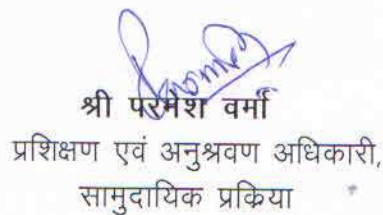 श्री परमेश वर्मा
प्रशिक्षण एवं अनुश्रवण अधिकारी,
सामुदायिक प्रक्रिया